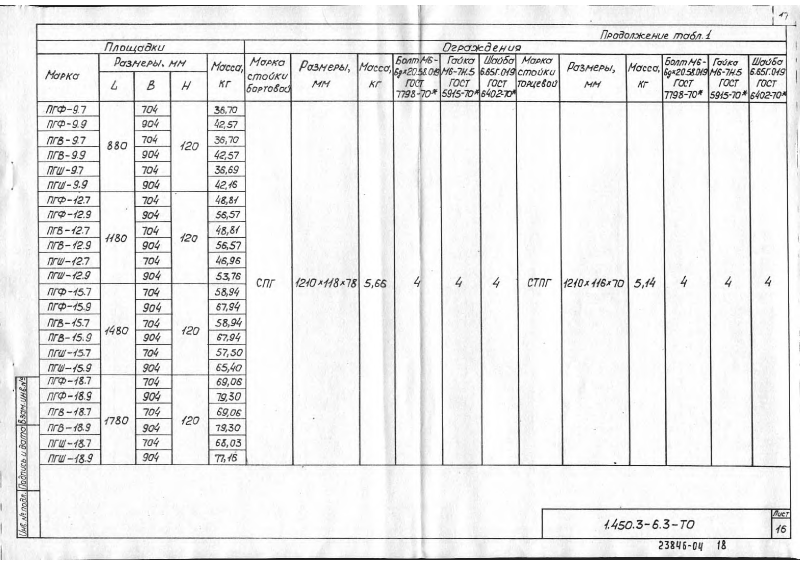 17
Продолжение табл.1
Площадки Ограждения
Марка Размеры, мм Масса, кг Марка стойки бортовой Размеры, мм Масса, кг Болт М6-6gх20.58.019 ГОСТ 7798-70* Гайка М6-7Н.5 ГОСТ 5915-70* Шайба 6.65Г.019 ГОСТ 6402-70* Марка стойки торцевой Размеры, мм Масса, кг Болт М6-6gх20.58.019 ГОСТ 7798-70* Гайка М6-7Н.5 ГОСТ 5915-70* Шайба 6.65Г.019 ГОСТ 6402-70*
L B H
ПГФ-9.7 704 36,70
ПГФ-9.9 904 42,57
ПГВ-9.7 704 36,70
880 120
ПГВ-9.9 904 42,57
ПГШ-9.7 704 36,69
ПГШ-9.9 904 42,16
ПГФ-12.7 704 48,81
ПГФ-12.9 904 56,57
ПГВ-12.7 704 48,81
1180 120
ПГВ-12.9 904 56,57
ПГШ-12.7 704 46,96
ПГШ-12.9 904 53,76
СПГ 1210×118×78 5,66 4 4 4 СТПГ 1210×116×70 5,14 4 4 4
ПГФ-15.7 704 58,94
ПГФ-15.9 904 67,94
ПГВ-15.7 704 58,94
1480 120
ПГВ-15.9 904 67,94
ПГШ-15.7 704 57,50
ПГШ-15.9 904 65,40
ПГФ-18.7 704 69,06
ПГФ-18.9 904 79,30
ПГВ-18.7 704 69,06
1780 120
ПГВ-18.9 904 79,30
ПГШ-18.7 704 68,03
ПГШ-18.9 904 77,16
Инв. № подл. Подпись и дата Взам. инв. №
1.450.3-6.3-ТО
Лист
16
23846-04 18